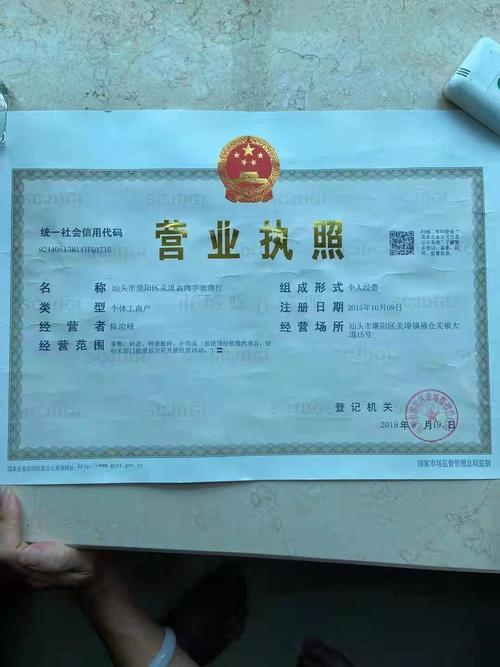 统一社会信用代码
92440513MA4YFQ171B
营业执照
扫描二维码登录"
国家企业信用信息
公示系统"了解更
多登记、备案、许
可、监管信息。
名称 汕头市潮阳区关埠名尚手表商行
类型 个体工商户
经营者 陈治峰
经营范围 零售:钟表、钟表配件、小饰品(依法须经批准的项目,经
相关部门批准后方可开展经营活动。)
组成形式 个人经营
注册日期 2015年10月09日
经营场所 汕头市潮阳区关埠镇桥仓关棉大
道15号
登记机关
2019年9月19日
国家企业信用信息公示系统网址:http://www.gsxt.gov.cn
国家市场监督管理总局监制
SCJDGL